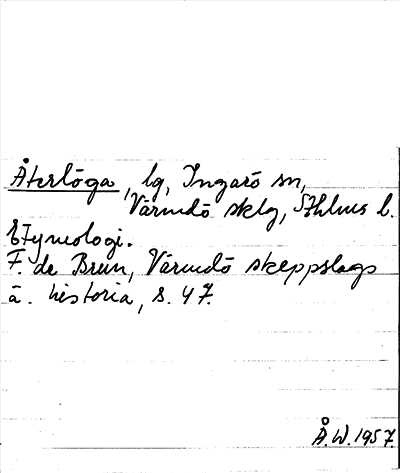 Återlöga, lg, Ingarö sn,
Värmdö sklg, Sthlms l.
Etymologi.
F. de Brun, Värmdö skeppslags
ä. historia, s. 47.
Å.W. 1957.